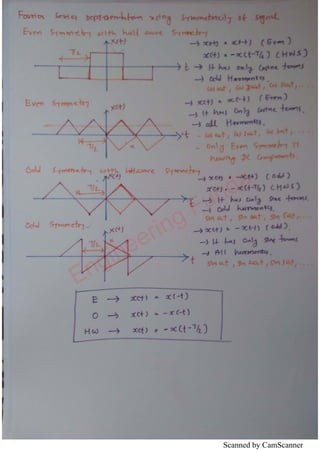 Fourier Series Representation using Symmetricity of Signal
Even Symmetry with half wave Symmetry
x(t)
T/2
t
→ x(t) = x(-t) (Even)
x(t) = -x(t-T/2) (HWS)
→ It has only Cosine terms
→ odd Harmonics
Even Symmetry
x(t)
T/2
t
→ x(t) = x(-t) (Even)
→ It has only Cosine terms,
→ all Harmonics,
- Only Even Symmetry is
having DC Components.
Odd Symmetry with halfwave Symmetry
x(t)
T/2
t
→ x(t) = -x(-t) (odd)
x(t) = -x(t-T/2) (HWS)
→ It has only Sine terms
→ odd harmonics,
Odd Symmetry
x(t)
T/2
t
→ x(t) = -x(-t) (odd)
→ It has only Sine terms
→ All harmonics,
Engineering
E → x(t) = x(-t)
O → x(t) = -x(-t)
HW → x(t) = -x(t-T/2)
Scanned by CamScanner